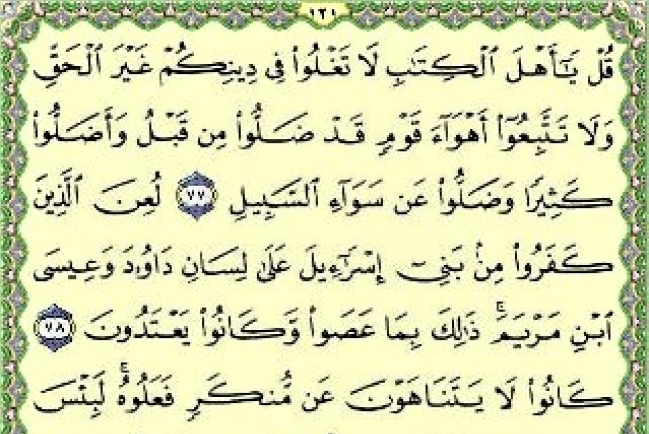 ١٢١
قُلْ يَٰٓأَهْلَ ٱلْكِتَٰبِ لَا تَغْلُوا۟ فِى دِينِكُمْ غَيْرَ ٱلْحَقِّ
وَلَا تَتَّبِعُوٓا۟ أَهْوَآءَ قَوْمٍ قَدْ ضَلُّوا۟ مِن قَبْلُ وَأَضَلُّوا۟
كَثِيرًا وَضَلُّوا۟ عَن سَوَآءِ ٱلسَّبِيلِ ٧٧ لُعِنَ ٱلَّذِينَ
كَفَرُوا۟ مِنۢ بَنِىٓ إِسْرَٰٓءِيلَ عَلَىٰ لِسَانِ دَاوُۥدَ وَعِيسَى
ٱبْنِ مَرْيَمَ ۚ ذَٰلِكَ بِمَا عَصَوا۟ وَّكَانُوا۟ يَعْتَدُونَ ٧٨
كَانُوا۟ لَا يَتَنَاهَوْنَ عَن مُّنكَرٍ فَعَلُوهُ ۚ لَبِئْسَ